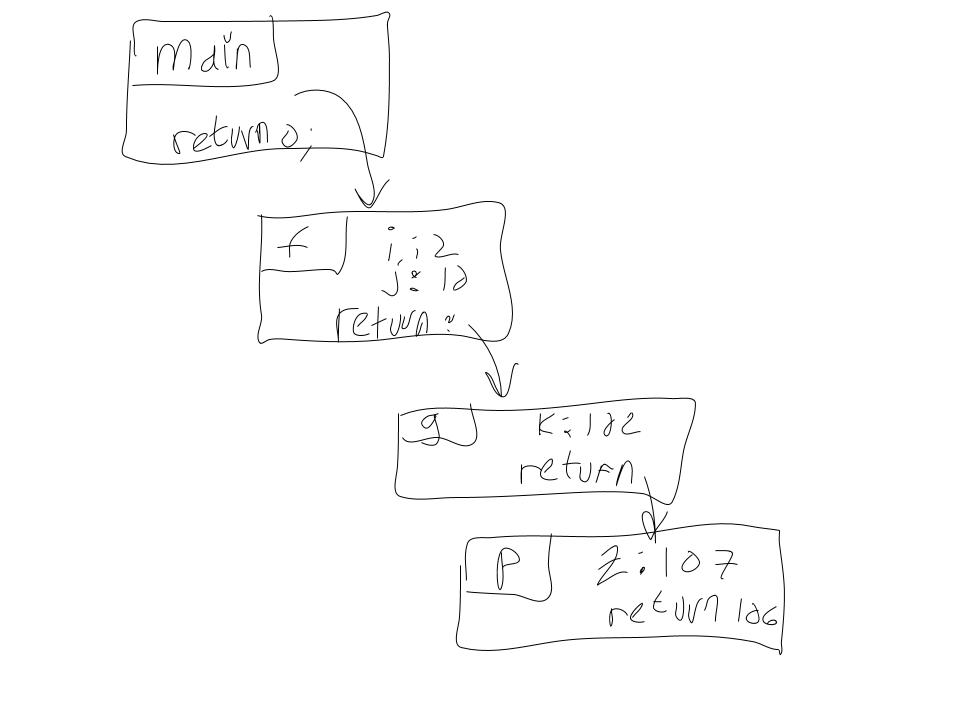 main
return 0;
f
i: 2
j: 10
return :
g
k: 102
return
p
z: 107
return 106